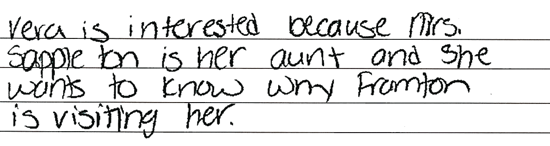 Vera is interested because Mrs.
Sapple ton is her aunt and she
wants to know why Framton
is visiting her.